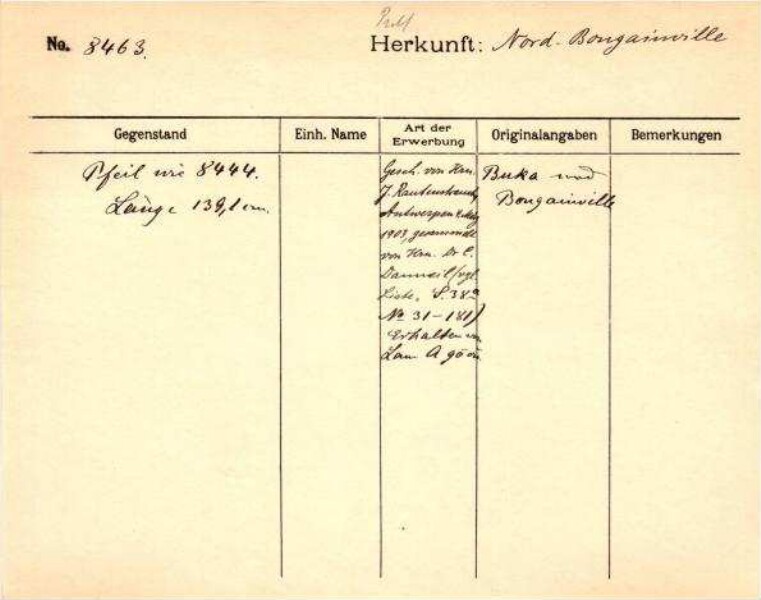 No. 8463.
Herkunft: Nord-Bougainville
Gegenstand
Einh. Name
Art der Erwerbung
Originalangaben
Bemerkungen
Pfeil wie 8444.
Länge 139,1 cm.
Gesch. von Hrn.
J. Rautenstrauch,
Antwerpen
1903, gesammelt
von Hrn. Dr C.
(vgl.
Liste, S. 38a
No 31-181)
Erhalten
Buka und
Bougainville